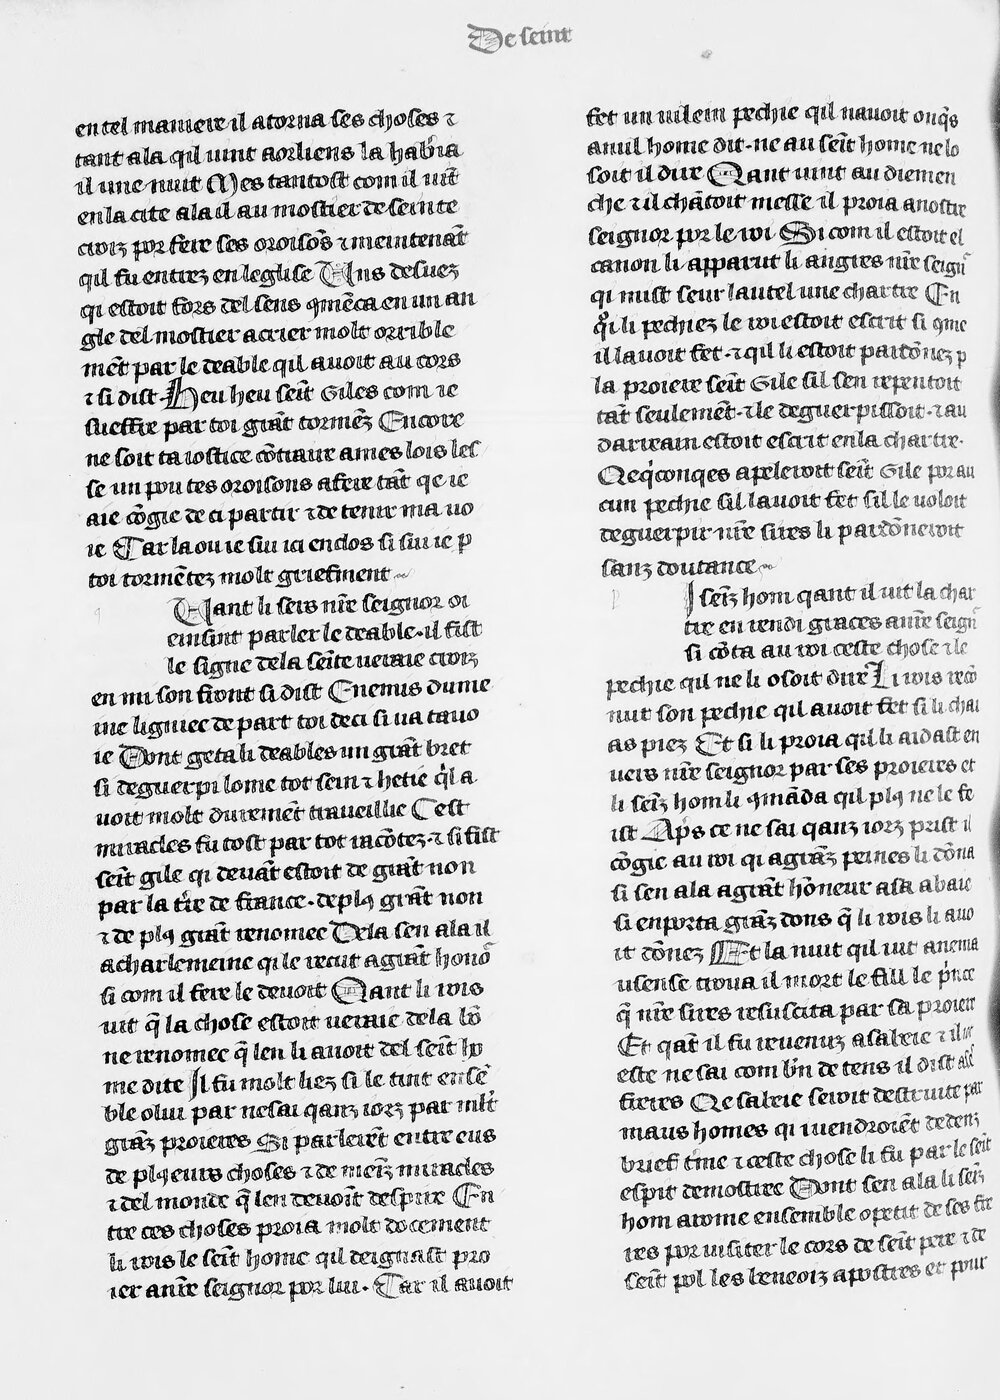 De seint
en tel maniere il atorna ses choses ⁊
tant ala qil uint aorliens la hab̾ia
il une nuit Mes tantost com il uīt
en la cite ala il au mostier de seinte
croiz por fere ses oroisōs ⁊ meintenāt
qil fu entrez en leglise Uns desuez
qi estoit fors del sens 9mēca en un an
gle del mostier a crier molt orrible
mēt par le deable qil auoit au cors
⁊ si dist. Heu heu seīt Giles com ie
sueffre par toi grāt tormēz Encore
ne soit ta iostice cōtraire a mes lois les
se un pou tes oroisons a fere tāt qe ie
aie cōgie de ci partir ⁊ de tenir ma uo
ie Car la ou ie sui ici enclos si sui ie p
toi tormētez molt griefment
Qant li sers nr̄e seignor oi
einsint parler le deable. il fist
le signe de la seīte ueraie croiz
en mi son front si dist Enemis dume
ine ligniee depart toi de ci si ua ta uo
ie Dont geta li deables un grāt bret
si deguerpi lome tot sein ⁊ hetie q̇l a
uoit molt duremēt traueillie Cest
miracles fu tost par tot racōtez. ⁊ si fist
seīt gile qi deuāt estoit de grāt non
par la tr̄e de france. de pl9 grāt non
⁊ de pl9 grāt renomee Dela sen ala il
a charlemeine qi le recut a grāt hono᷑
si com il fere le deuoit Qant li rois
uit q̄ la chose estoit ueraie de la bō
ne renomee q̄ len li auoit del seīt ho
me dite Il fu molt liez si le tint ensē
ble o lui par ne sai qanz iorz par ml̄t
grāz proieres Si parlerēt entre eus
de pl9eurs choses ⁊ de meīz miracles
⁊ del monde q̄ len deuoīt despire En
tre ces choses proia molt docement
li rois le seīt home qil deignast pro
ier a nr̄e seignor por lui. Car il auoit
fet un uilein pechie qil nauoit onq̄s
a nul home dit. ne au seīt home ne lo
soit il dire Qant uint au diemen
che ⁊ il chātoit messe il proia a nostre
seignor por le roi Si com il estoit el
canon li apparut li angres nr̄e seign᷑
qi mist seur lautel une chartre En
q̇i li pechiez le roi estoit escrit si 9me
il lauoit fet. ⁊ qil li estoit pardōnez p
la proiere seīt Gile sil sen repentoit
tāt seulemēt. ⁊ le deguerpissoit. ⁊ au
darreain estoit escrit en la chartre.
Qe q̇conqes apeleroit seīt Gile por au
cun pechie sil lauoit fet sil le uoloit
deguerpir nr̄e sires li pardōneroit
sanz doutance
I seīz hom qant il uit la char
tre en rendi graces a nr̄e seign᷑
si cōta au roi ceste chose ⁊ le
pechie qil ne li osoit dire Li rois recō
nut son pechie qil auoit fet si li chai
as piez Et si li proia qil li aidast en
uers nr̄e seignor par ses proieres et
li seīz hom li 9māda qil pl9 ne le fe
ist Ap̄s ce ne sai qanz iorz prist il
cōgie au roi qi a grāz peines li dōna
si sen ala a grāt hōneur a sa abaie
si enporta grāz dons q̄ li rois li auo
it dōnez Et la nuit qil iut a nema
usense troua il mort le fill le p̄nce
q̄ nr̄e sires resuscita par sa proiere
Et qāt il fu reuenuz a sabeie ⁊ il ot
este ne sai com bn̄ de tens il dist a se
freres Qe sabeie seroit destruite par
maus homes qi uiendroiēt dedenz
brief tm̄e ⁊ ceste chose li fu par le seīt
espit demostree Dont sen ala li seīz
hom a rome ensemble o petit de ses fre
res por uisiter le cors de seīt pere ⁊ de
seīt pol les beneoiz apostres et pour